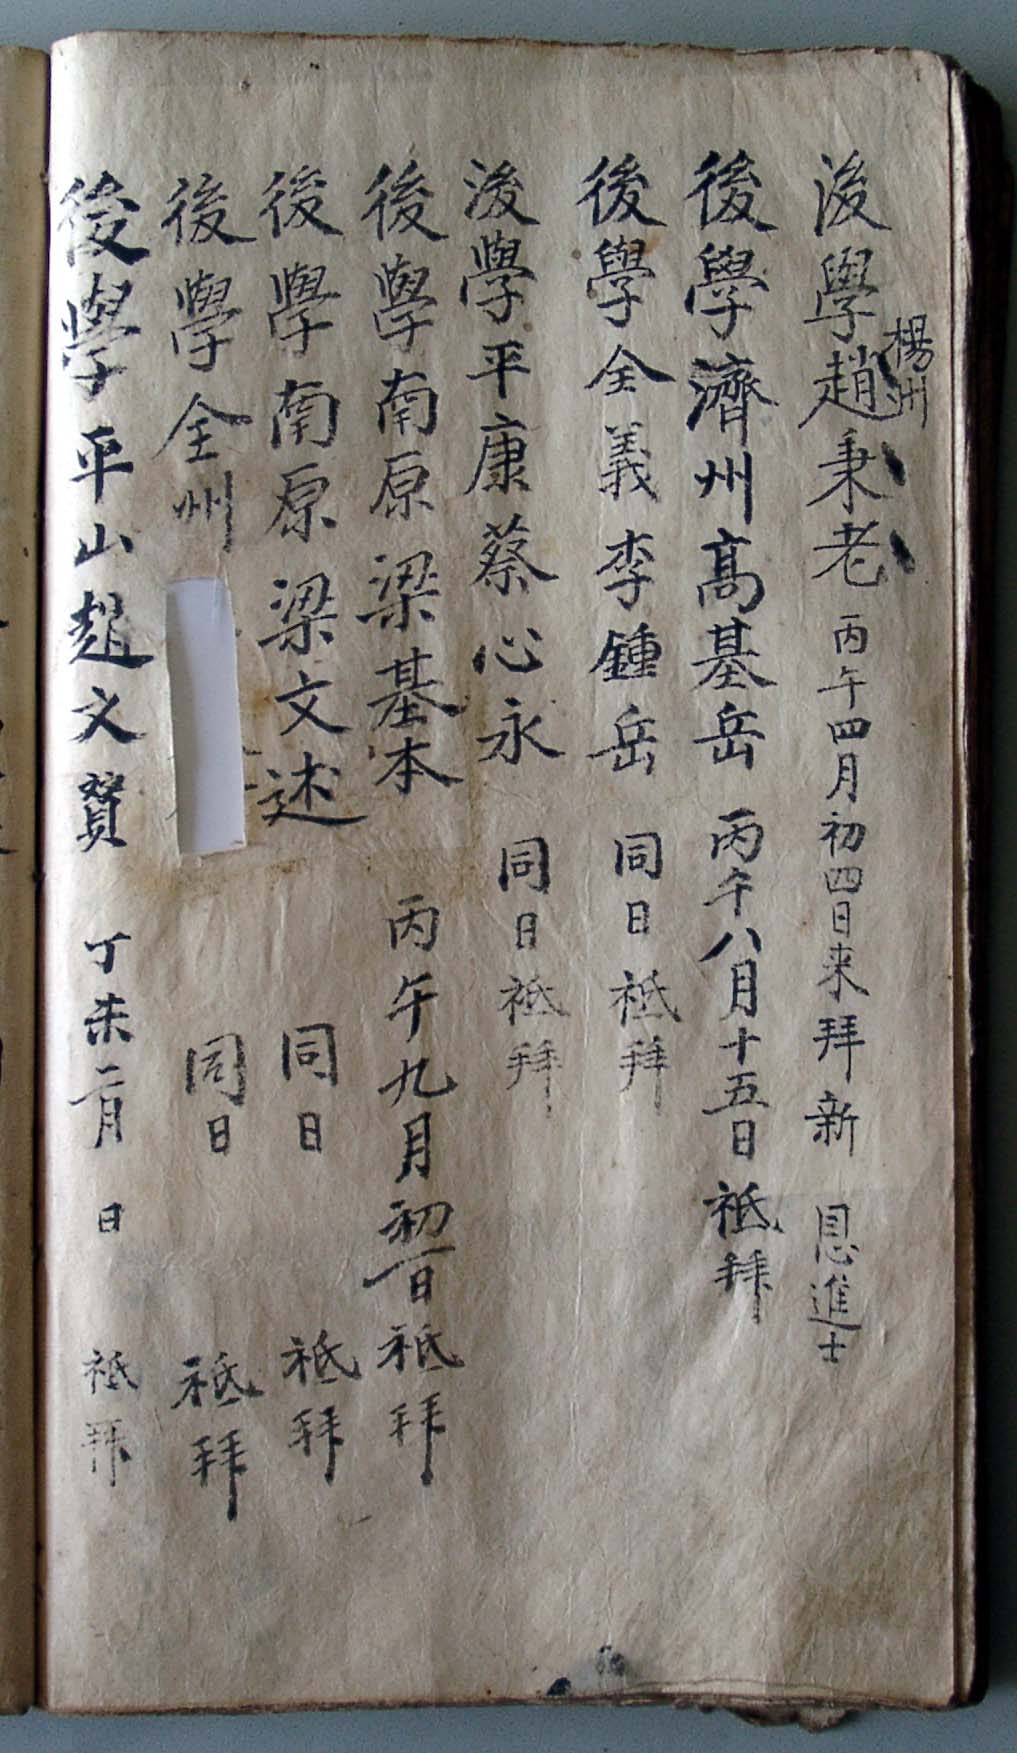 後學楊州趙秉老 丙午四月初四日来拜 新恩進士
後學濟州髙基岳 丙午八月十五日祗拜
後學全義李鍾岳 同日祗拜
後學平康蔡心永 同日祗拜
後學南原梁基本 丙午九月初一日祗拜
後學南原梁文述 同日 祗拜
後學全州 同日 祗拜
後學平山趙文賛 丁未二月 日 祗拜